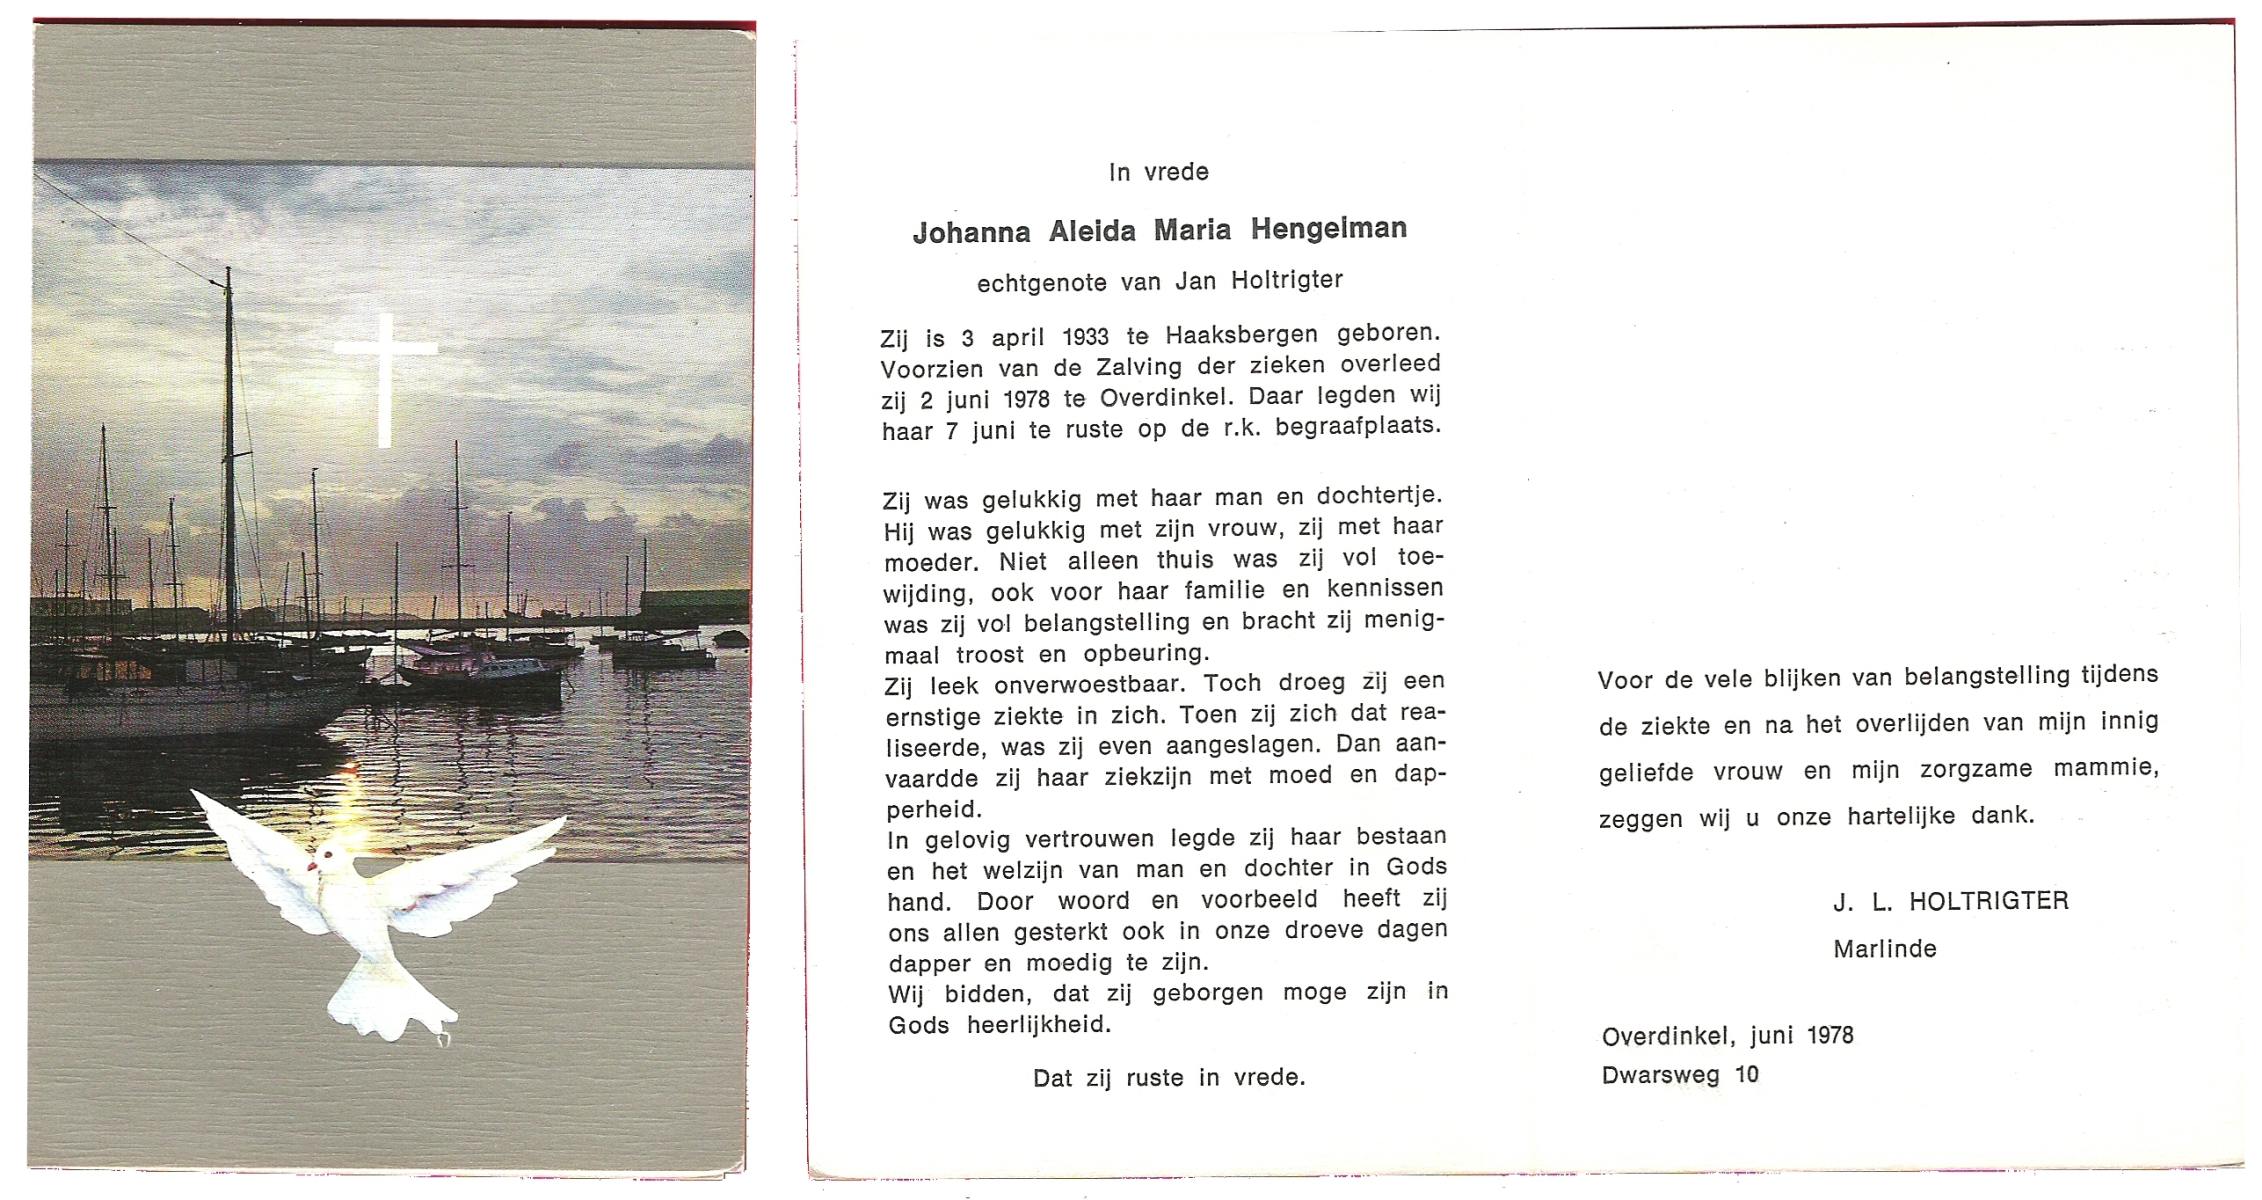 In vrede
Johanna Aleida Maria Hengelman
echtgenote van Jan Holtrigter
Zij is 3 april 1933 te Haaksbergen geboren.
Voorzien van de Zalving der zieken overleed
zij 2 juni 1978 te Overdinkel. Daar legden wij
haar 7 juni te ruste op de r.k. begraafplaats.
Zij was gelukkig met haar man en dochtertje.
Hij was gelukkig met zijn vrouw, zij met haar
moeder. Niet alleen thuis was zij vol toe-
wijding, ook voor haar familie en kennissen
was zij vol belangstelling en bracht zij menig-
maal troost en opbeuring.
Zij leek onverwoestbaar. Toch droeg zij een
ernstige ziekte in zich. Toen zij zich dat rea-
liseerde, was zij even aangeslagen. Dan aan-
vaardde zij haar ziekzijn met moed en dap-
perheid.
In gelovig vertrouwen legde zij haar bestaan
en het welzijn van man en dochter in Gods
hand. Door woord en voorbeeld heeft zij
ons allen gesterkt ook in onze droeve dagen
dapper en moedig te zijn.
Wij bidden, dat zij geborgen moge zijn in
Gods heerlijkheid.
Dat zij ruste in vrede.
Voor de vele blijken van belangstelling tijdens
de ziekte en na het overlijden van mijn innig
geliefde vrouw en mijn zorgzame mammie,
zeggen wij u onze hartelijke dank.
J. L. HOLTRIGTER
Marlinde
Overdinkel, juni 1978
Dwarsweg 10